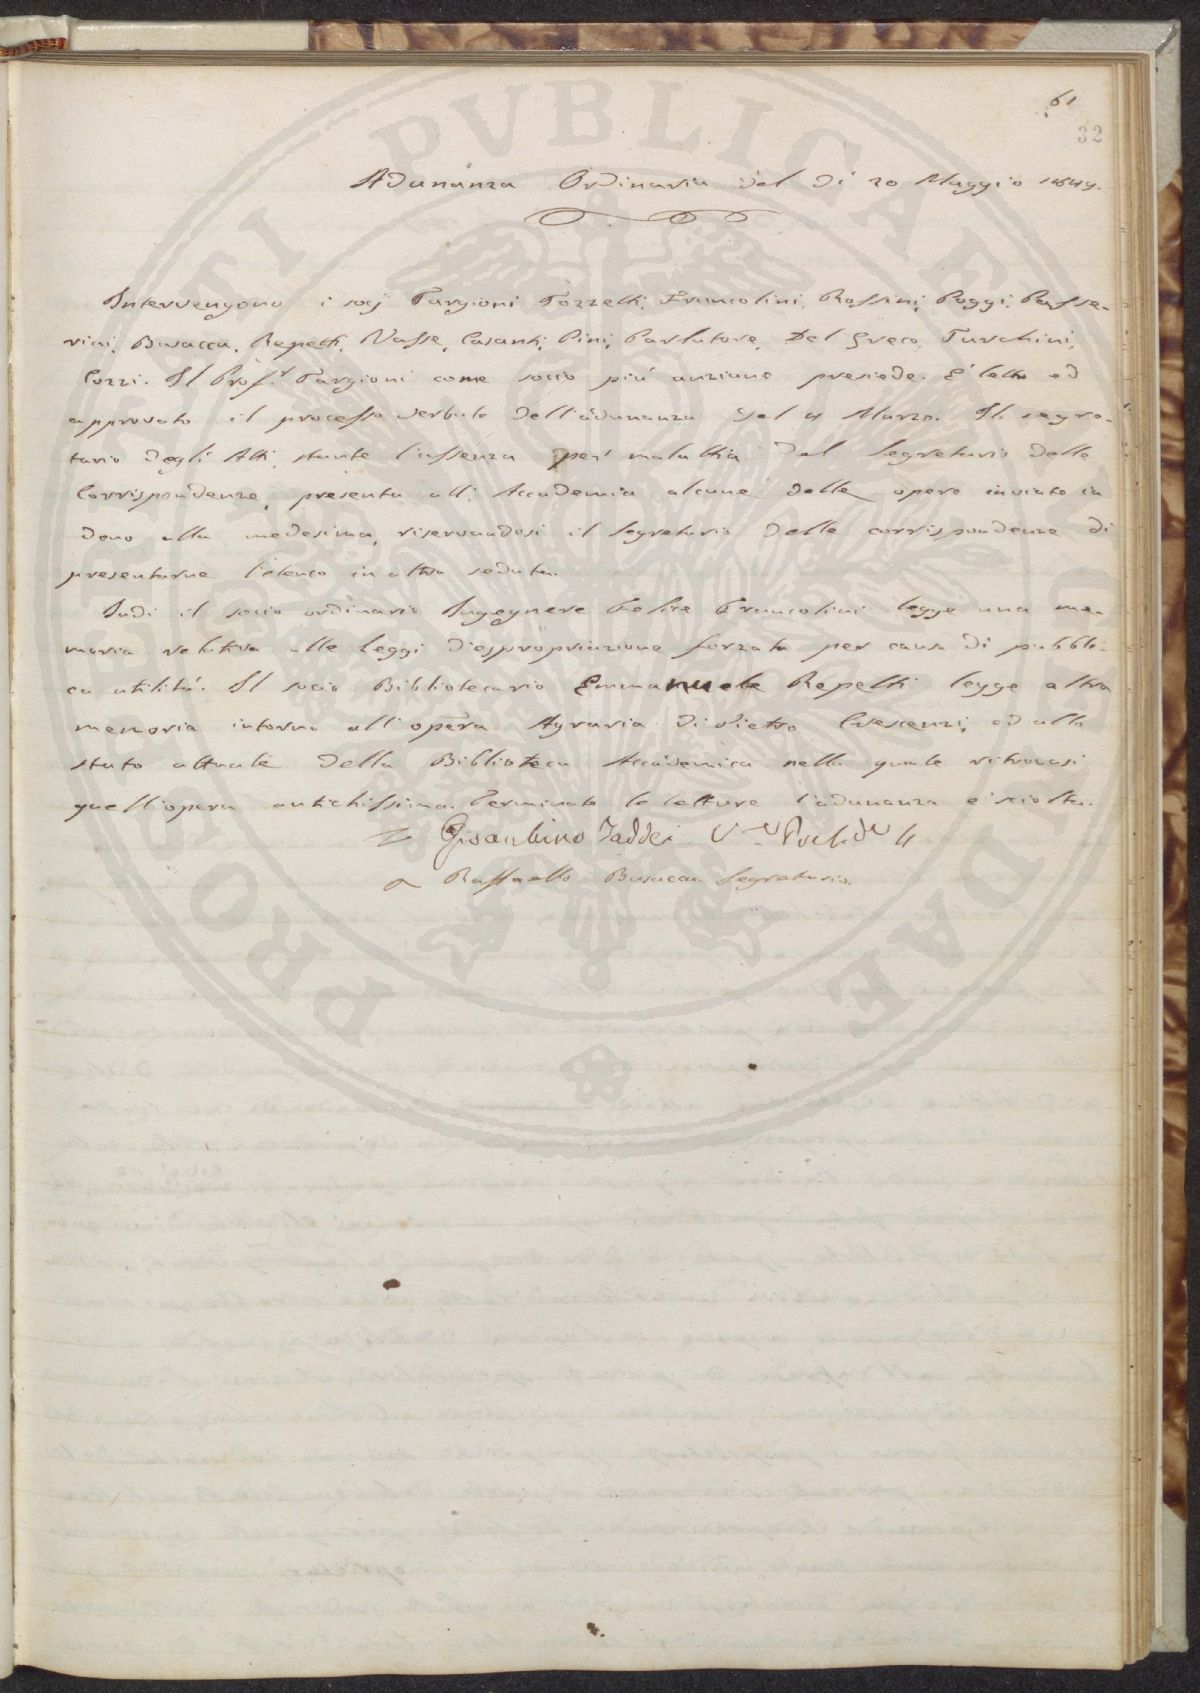 61
32
Adunanza Ordinaria del dì 20 Maggio 1849.
Intervengono i socj Targioni Tozzetti, Francolini, Rossini, Poggi, Passe-
rini, Busacca, Repetti, Casanti, Pini, Parlatore, Del Greco, Turchini,
Cozzi. Il Prof.r Targioni come socio più anziano presiede. E' letto ed
approvato il processo verbale dell'adunanza del 4 Marzo. Il segre-
tario degli Atti, stante l'assenza per malattia del Segretario delle
Corrispondenze, presenta all'Accademia alcune delle opere inviate in
dono alla medesima, riservandosi il Segretario delle corrispondenze di
presentarne l'elenco in altra seduta.
Indi il socio ordinario Ingegnere Felice Francolini legge una me-
moria relativa alle leggi d'espropriazione forzata per causa di pubbli-
ca utilità. Il socio Bibliotecario Emmanuele Repetti legge altra
memoria intorno all'opera Agraria di Pietro Crescenzi, ed allo
stato attuale della Biblioteca Accademica nella quale ritrovasi
quell'opera antichissima. Terminate le letture l'adunanza è sciolta.
Gioacchino Taddei V. Presid.
Raffaello Busacca Segretario.
PROSPERITATI PUBLICAE AUGENDAE